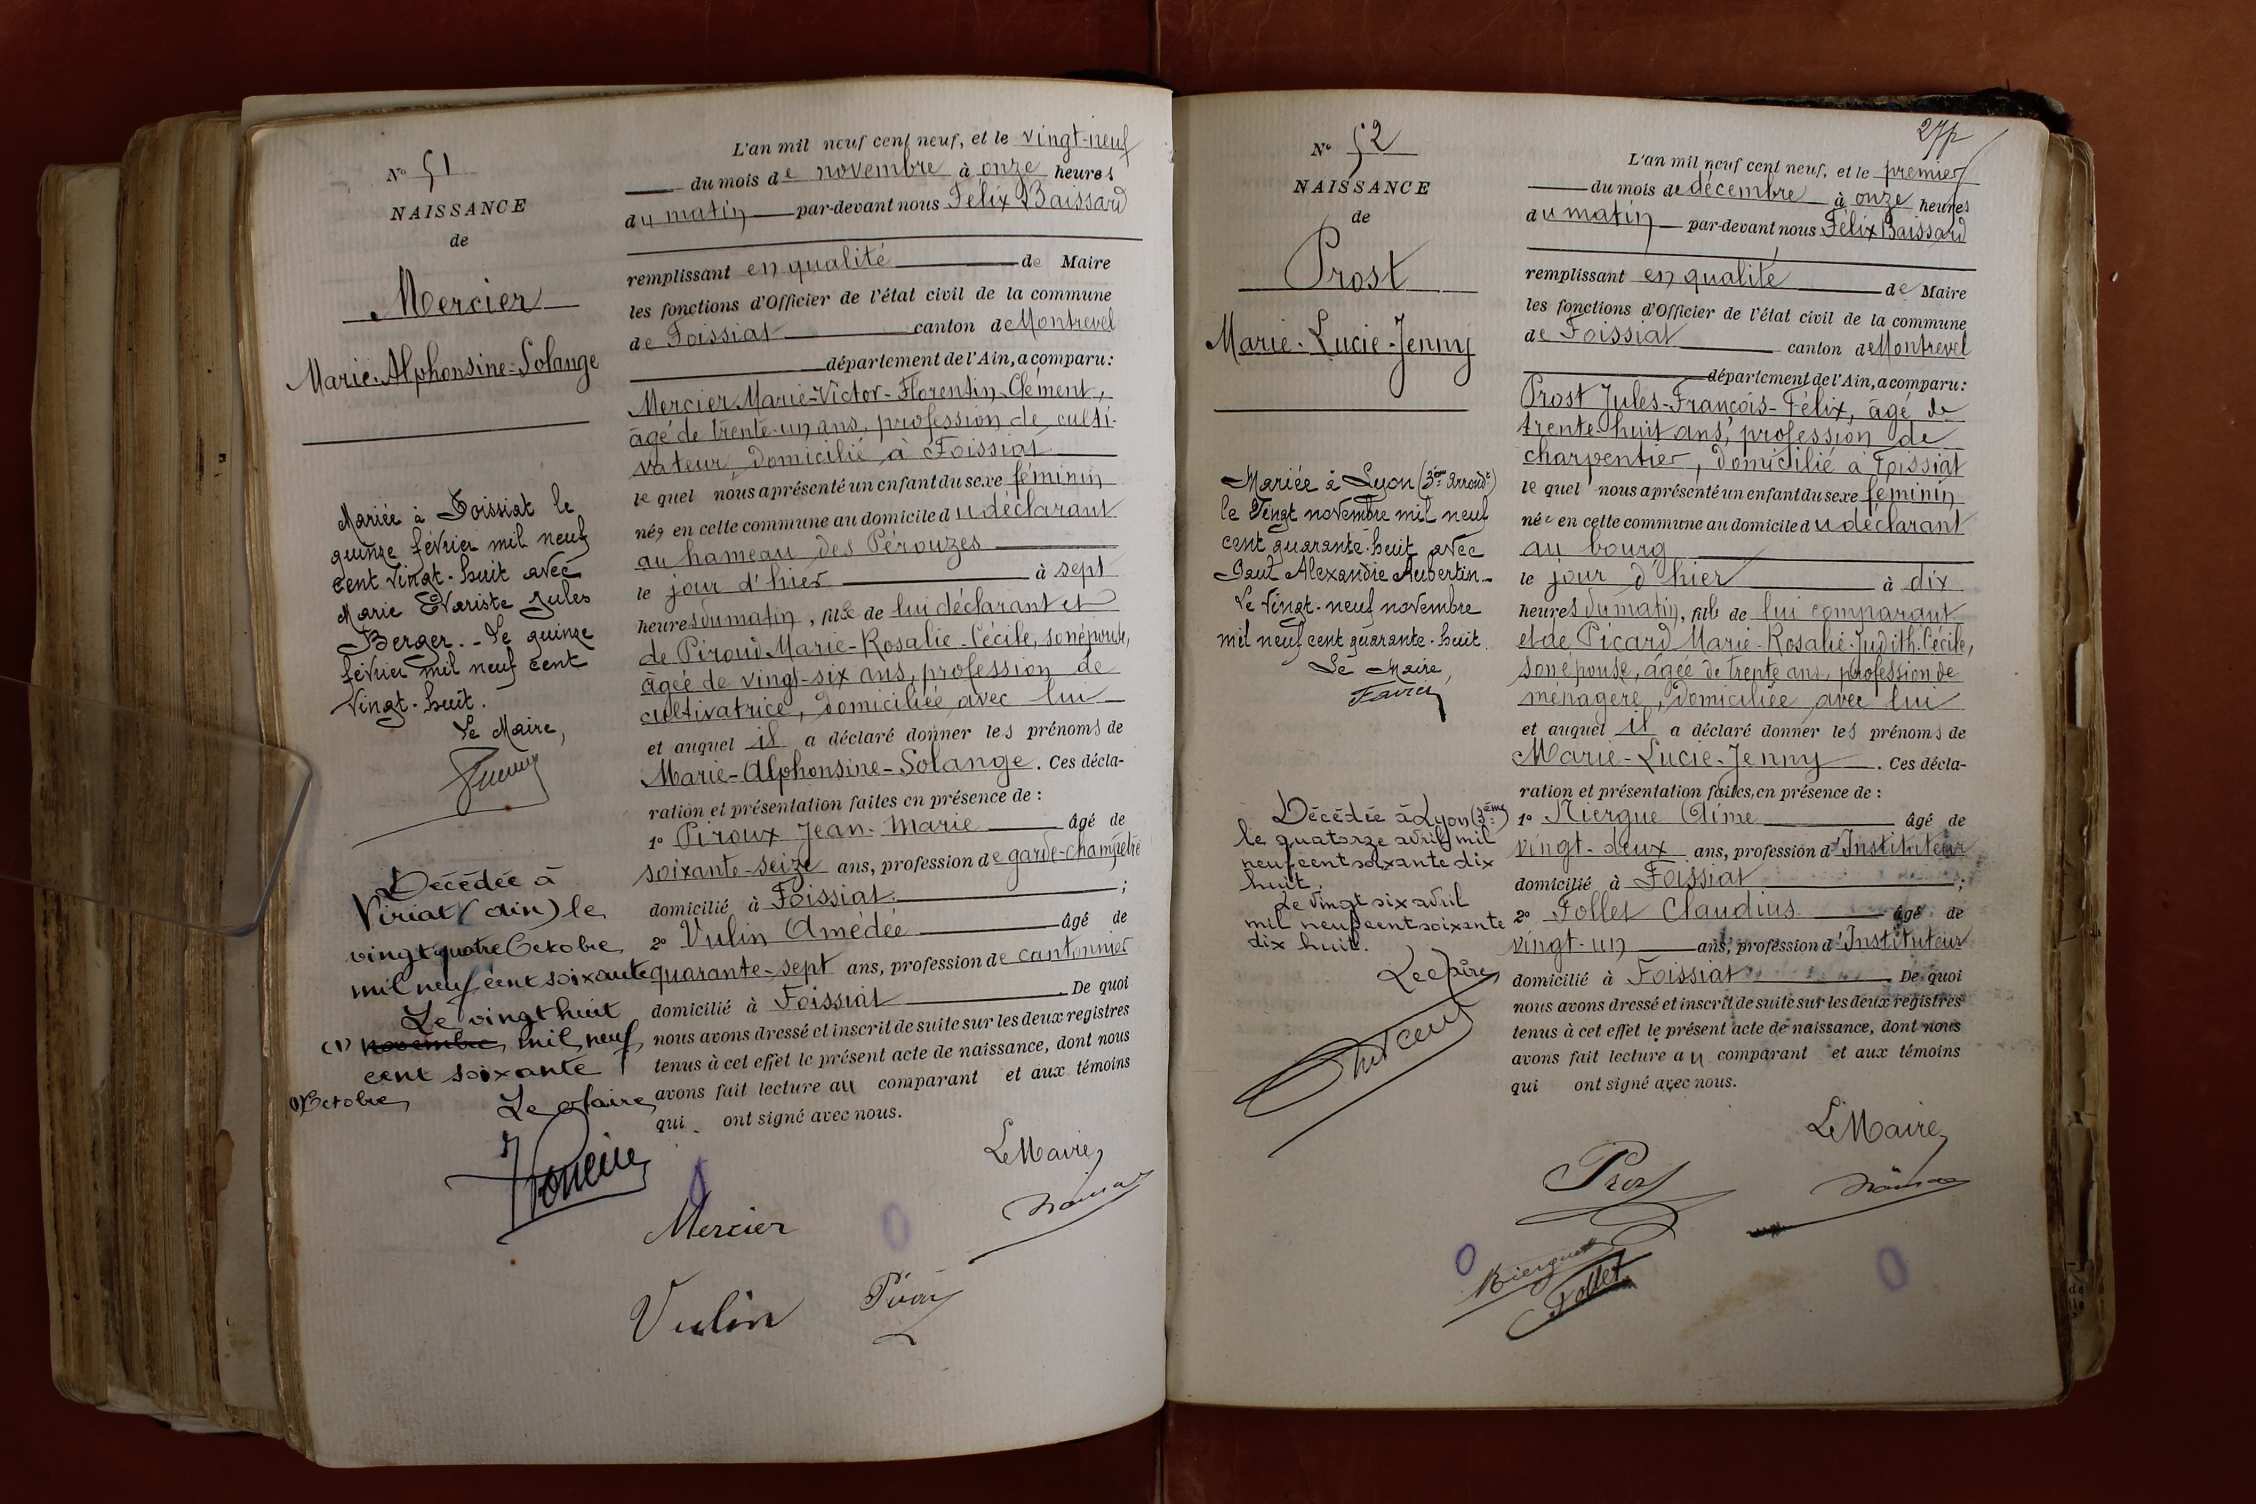 N° 51
NAISSANCE
de
Mercier
Marie-Alphonsine-Solange
Mariée à Foissiat le
quinze février mil neuf
cent vingt-huit avec
Marie Evariste Jules
Berger. - Le quinze
février mil neuf cent
vingt-huit.
Le Maire,
Décédée à
Viriat (Ain) le
vingt quatre Octobre
mil neuf cent soixante
Le vingt huit
(1) novembre mil neuf
cent soixante
(1) Octobre
Le Maire
L'an mil neuf cent neuf, et le vingt-neuf
du mois de novembre à onze heures
du matin par-devant nous Félix Baissard
remplissant en qualité de Maire
les fonctions d'Officier de l'état civil de la commune
de Foissiat canton de Montrevel
département de l'Ain, a comparu:
Mercier Marie-Victor-Florentin-Clément,
âgé de trente-un ans, profession de culti-
vateur, domicilié à Foissiat
lequel nous a présenté un enfant du sexe féminin
née en cette commune au domicile du déclarant
au hameau des Pérouzes
le jour d'hier à sept
heures du matin, fille de lui déclarant et
de Piroud Marie-Rosalie-Cécile, son épouse,
âgée de vingt-six ans, profession de
cultivatrice, domiciliée avec lui
et auquel il a déclaré donner les prénoms de
Marie-Alphonsine-Solange. Ces décla-
ration et présentation faites en présence de :
1° Piroux Jean-Marie âgé de
soixante-seize ans, profession de garde-champêtre
domicilié à Foissiat ;
2° Vulin Amédée âgé de
quarante-sept ans, profession de cantonnier
domicilié à Foissiat De quoi
nous avons dressé et inscrit de suite sur les deux registres
tenus à cet effet le présent acte de naissance, dont nous
avons fait lecture au comparant et aux témoins
qui ont signé avec nous.
Le Maire,
Mercier
Vulin
27
N° 52
NAISSANCE
de
Prost
Marie-Lucie-Jenny
Mariée à Lyon (3ème Arrondt)
le vingt novembre mil neuf
cent quarante-huit avec
Paul Alexandre Aubertin -
Le vingt-neuf novembre
mil neuf cent quarante-huit.
Le Maire,
Décédée à Lyon (3ème)
le quatorze avril mil
neuf cent soixante dix
huit.
Le vingt six avril
mil neuf cent soixante
dix huit.
L'an mil neuf cent neuf, et le premier
du mois de décembre à onze heures
du matin par-devant nous Félix Baissard
remplissant en qualité de Maire
les fonctions d'Officier de l'état civil de la commune
de Foissiat canton de Montrevel
département de l'Ain, a comparu:
Prost Jules-François-Félix, âgé de
trente-huit ans, profession de
charpentier, domicilié à Foissiat
lequel nous a présenté un enfant du sexe féminin
née en cette commune au domicile du déclarant
au bourg
le jour d'hier à dix
heures du matin, fille de lui comparant
et de Picard Marie-Rosalie-Judith-Cécile,
son épouse, âgée de trente ans, profession de
ménagère, domiciliée avec lui
et auquel il a déclaré donner les prénoms de
Marie-Lucie-Jenny. Ces décla-
ration et présentation faites en présence de :
1° Niergue Aimé âgé de
vingt-deux ans, profession d'Instituteur
domicilié à Foissiat ;
2° Follet Claudius âgé de
vingt-un ans, profession d'Instituteur
domicilié à Foissiat De quoi
nous avons dressé et inscrit de suite sur les deux registres
tenus à cet effet le présent acte de naissance, dont nous
avons fait lecture au comparant et aux témoins
qui ont signé avec nous.
Le Maire,
Prost
Follet